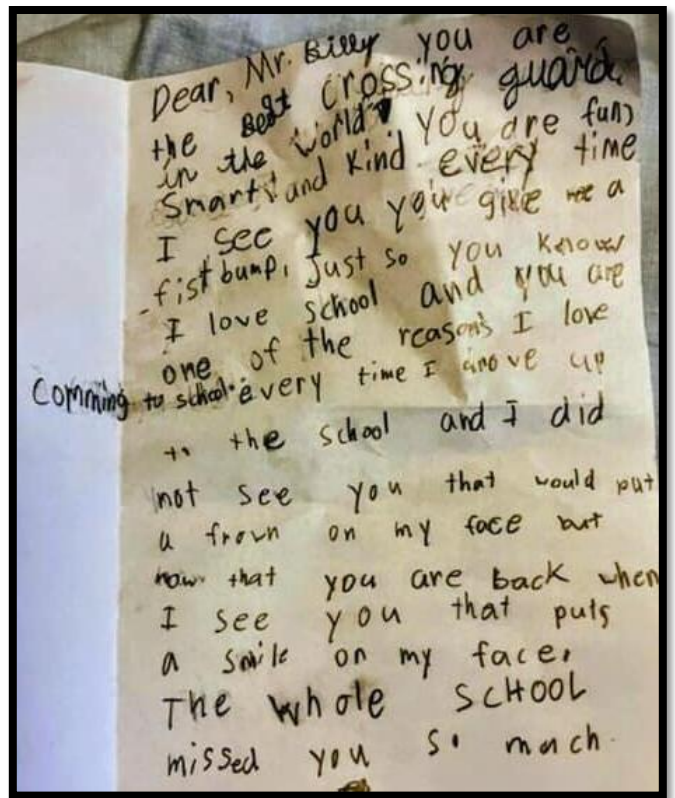 Dear, Mr. Billy you are
the Best crossing guard
in the world. You are fun,
Smart, and kind. every time
I see you you give me a
fist bump, Just so you know
I love school and you are
one of the reasons I love
Comming to school. every time I drove up
to the school and I did
not see you that would put
a frown on my face but
now that you are back when
I see you that puts
a smile on my face.
The whole SCHOOL
missed you so much.